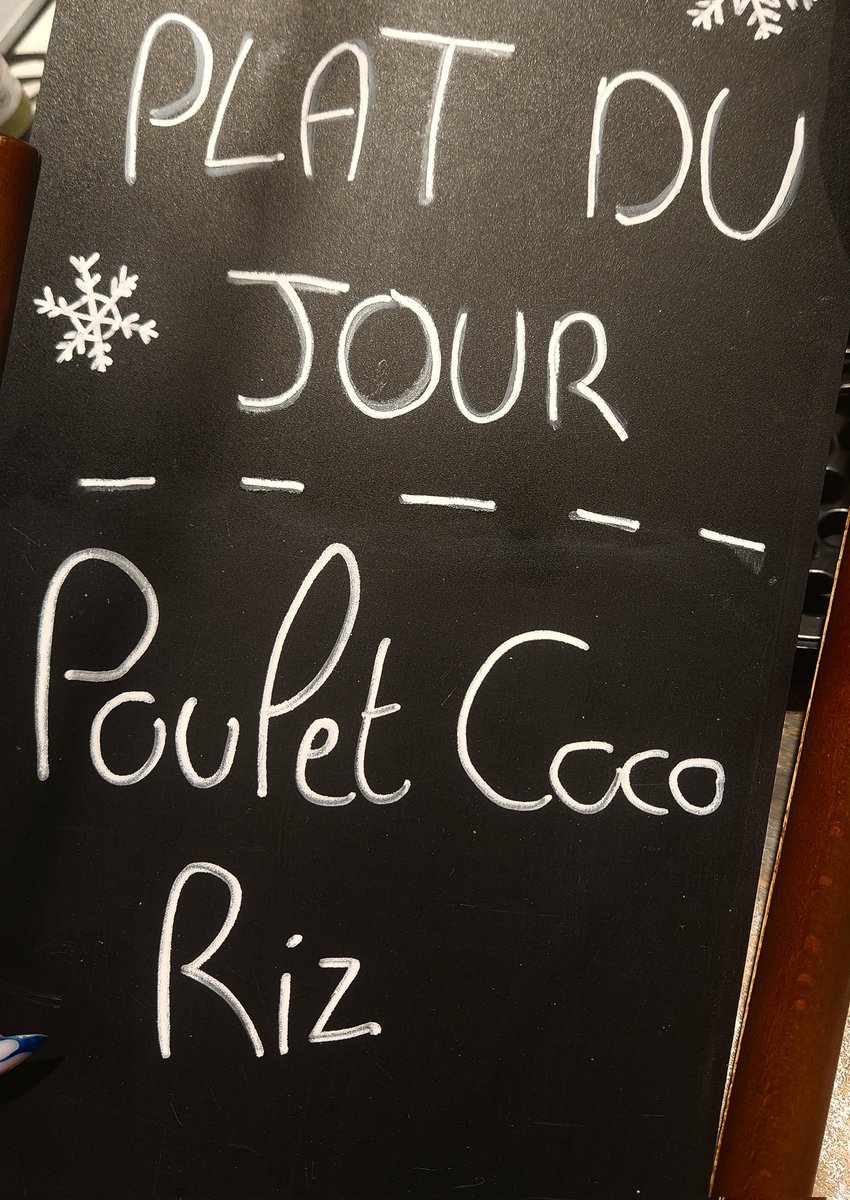 PLAT DU
JOUR
Poulet Coco
Riz